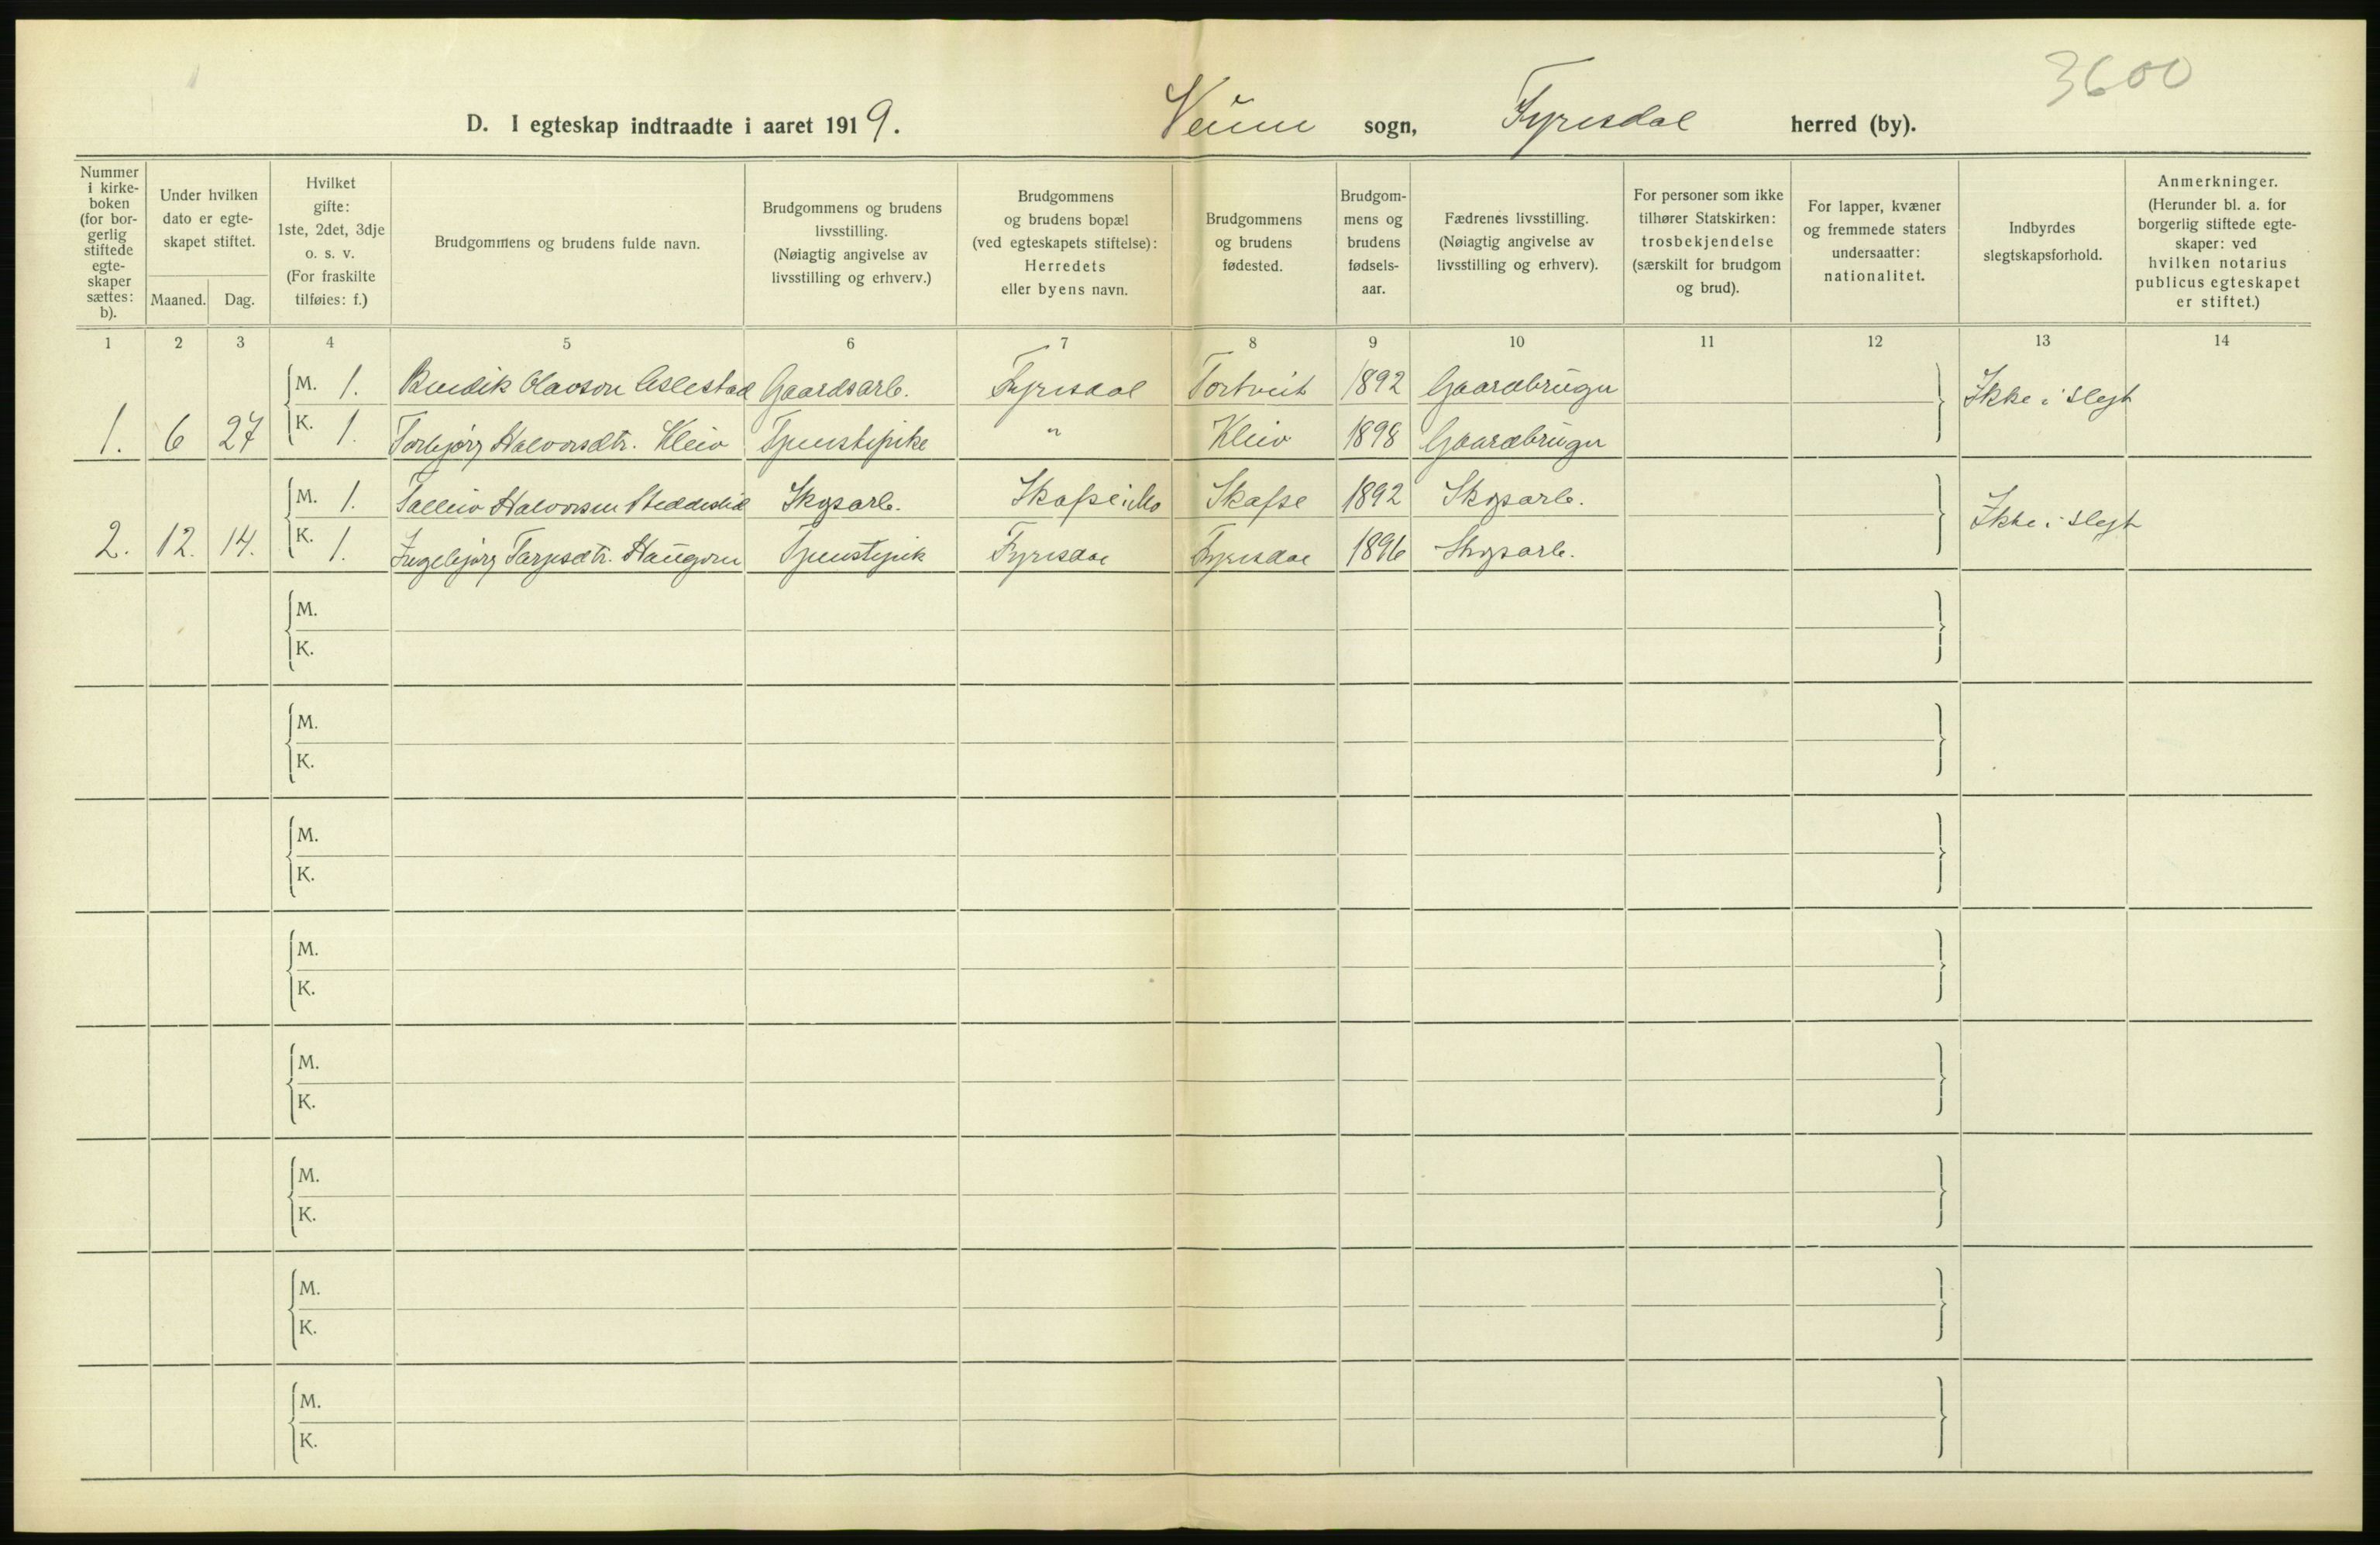 3600
D. I egteskap indtraadte i aaret 1919. Veum sogn, Fyresdal herred (by).
Nummer i kirke-boken (for bor-gerlig stiftede egte-skaper sættes: b).
Under hvilken dato er egte-skapet stiftet.
Maaned. Dag.
Hvilket gifte: 1ste, 2det, 3dje o. s. v. (For fraskilte tilføies: f.)
Brudgommens og brudens fulde navn.
Brudgommens og brudens livsstilling. (Nøiagtig angivelse av livsstilling og erhverv.)
Brudgommens og brudens bopæl (ved egteskapets stiftelse): Herredets eller byens navn.
Brudgommens og brudens fødested.
Brudgom-mens og brudens fødsels-aar.
Fædrenes livsstilling. (Nøiagtig angivelse av livsstilling og erhverv).
For personer som ikke tilhører Statskirken: trosbekjendelse (særskilt for brudgom og brud).
For lapper, kvæner og fremmede staters undersaatter: nationalitet.
Indbyrdes slegtskapsforhold.
Anmerkninger. (Herunder bl. a. for borgerlig stiftede egte-skaper: ved hvilken notarius publicus egteskapet er stiftet.)
1 2 3 4 5 6 7 8 9 10 11 12 13 14
M. 1. Bendik Olavson Aslestad Gaardsarb. Fyresdal Tortveit 1892 Gaardbruger Ikke i slegt
1. 6 27 K. 1. Torbjørg Halvorsdtr. Kleiv Tjenestepike " Kleiv 1898 Gaardbruger
M. 1. Talleiv Halvorsen Skogsarb. Skafse i Mo Skafse 1892 Skogsarb. Ikke i slegt
2. 12. 14. K. 1. Ingebjørg Tarjesdtr. Haugom Tjenestepik Fyresdal Fyresdal 1896 Skogsarb.
M.
K.
M.
K.
M.
K.
M.
K.
M.
K.
M.
K.
M.
K.
M.
K.